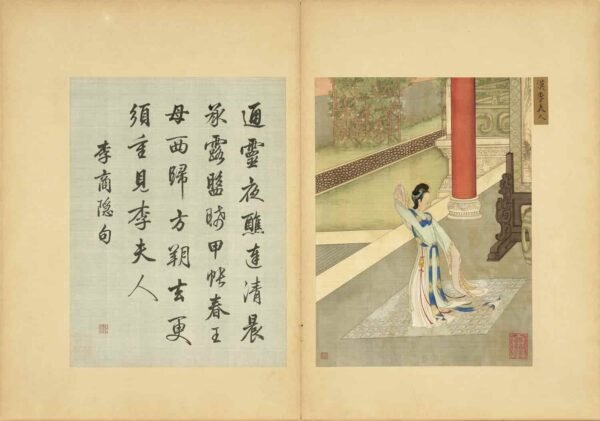 通靈夜醮達清晨
承露盤晞甲帳春王
母西歸方朔去更
須重見李夫人
李商隱句
漢李夫人